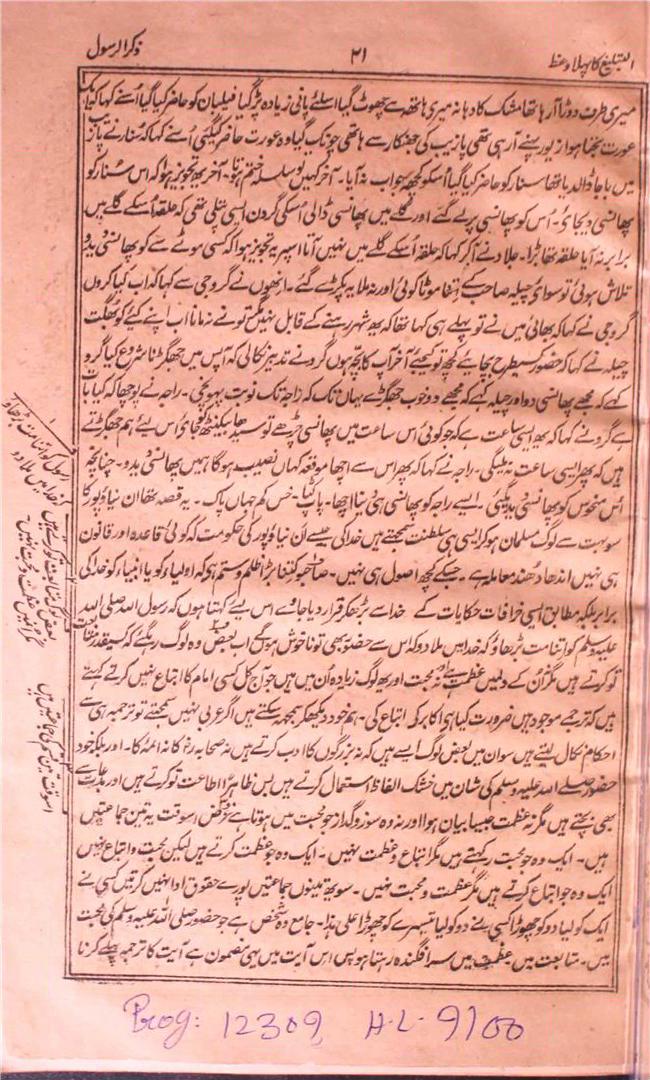 التبلیغ کا پہلا وعظ
۲۱
ذکر الرسول
میری طرف دوڑا آرہا تھا مشک کا دہانہ میری ہاتھ سے چھوٹ گیا اسلئے پانی زیادہ پڑ گیا فیلبان کو حاضر کیا گیا اُسنے کہا کہ ایک
عورت بجتا ہوا زیور پہنے آرہی تھی پازیب کی جھنکار سے ہاتھی چونک گیا وہ عورت حاضر کیگئی اُسنے کہا کہ سنار نے پازیب
میں باجا ڈالدیا تھا سنار کو حاضر کیا گیا اُسکو کچھ جواب نہ آیا۔ آخر کہیں تو سلسلہ ختم ہوتا۔ آخر یہ تجویز ہوا کہ اس سُنار کو
پھانسی دیجائے۔ اُس کو پھانسی پر لے گئے اور گلے میں پھانسی ڈالی اُسکی گردن ایسی پتلی تھی کہ حلقہ اُسکے گلے میں
برابر نہ آیا حلقہ تھا بڑا۔ جلاد نے آکر کہا کہ حلقہ اُسکے گلے میں نہیں آتا اسپر یہ تجویز ہوا کہ کسی موٹے سے کو پھانسی دیدو
تلاش ہوئی تو سوائے چیلہ صاحب کے اتنا موٹا کوئی اور نہ ملا یہ پکڑے گئے۔ انھوں نے گروجی سے کہا کہ اب کیا کروں
گروجی نے کہا کہ بھائی میں نے تو پہلے ہی کہا تھا کہ یہ شہر رہنے کے قابل نہیں مگر تونے نہ مانا اب اپنے کئے کو بھگت
چیلہ نے کہا کہ حضور کسیطرح بچائیے کچھ تو کیجئے آخر آپ کا بچہ ہوں گرو نے تدبیر نکالی کہ آپس میں جھگڑنا شروع کیا گرو
کہے کہ مجھے پھانسی دو اور چیلہ کہے کہ مجھے دو خوب جھگڑے یہاں تک کہ راجہ تک نوبت پہونچی۔ راجہ نے پوچھا کہ کیا بات
ہے گرو نے کہا کہ یہ ایسی ساعت ہے کہ جو کوئی اس ساعت میں پھانسی چڑھے تو سیدھا بیکنٹھ کو جائے اس لئے ہم جھگڑتے
ہیں کہ پھر ایسی ساعت نہ ملیگی۔ راجہ نے کہا کہ پھر اس سے اچھا موقعہ کہاں نصیب ہوگا ہمیں پھانسی دیدو۔ چنانچہ
اُس منحوس کو پھانسی دیدیگئی۔ ایسے راجہ کو پھانسی ہی دینا اچھا۔ پاپ کٹا۔ خس کم جہاں پاک۔ یہ قصہ تھا ان نیاؤ پور کا
سو بہت سے لوگ مسلمان ہو کر ایسی ہی سلطنت سمجھتے ہیں خدا کی جیسے اَن نیاؤ پور کی حکومت کہ کوئی قاعدہ اور قانون
ہی نہیں اندھا دھند معاملہ ہے۔ جسکے کچھ اصول ہی نہیں۔ صاحبو کتنا بڑا ظلم و ستم ہے کہ اولیاء کو یا انبیاء کو خدا کی
برابر بلکہ مطابق ایسی خرافات حکایات کے خدا سے بڑھکر قرار دیا جاوے اس لئے کہتا ہوں کہ رسول اللہ صلی اللہ
علیہ وسلم کو اتنا مت بڑھاؤ کہ خدا میں ملا دو کہ اس سے حضور بھی تو ناخوش ہونگے اب بعض وہ لوگ رہگئے کہ کسیقدر متابعت
تو کرتے ہیں مگر اُن کے دلمیں عظمت ہے نہ محبت اور یہ لوگ زیادہ اُن میں ہیں جو آجکل کسی امام کا اتباع نہیں کرتے کہتے
ہیں کہ ترجمے موجود ہیں ضرورت کیا ہی اکابر کی اتباع کی۔ ہم خود دیکھکر سمجھ سکتے ہیں اگر عربی نہیں سمجھتے تو ترجمہ ہی سے
احکام نکال لیتے ہیں سو ان میں بعض لوگ ایسے ہیں کہ نہ بزرگوں کا ادب کرتے ہیں نہ صحابہ رض کا نہ ائمہ کا۔ اور بلکہ خود
حضور صلے اللہ علیہ وسلم کی شان میں خشک الفاظ استعمال کرتے ہیں بس ظاہراً اطاعت تو کرتے ہیں اور بدعات سے
بھی بچتے ہیں مگر نہ عظمت جیسا بیان ہوا اور نہ وہ سوز و گداز جو محبت میں ہوتا ہے غرض اسوقت یہ تین جماعتیں
ہیں۔ ایک وہ جو محبت رکھتے ہیں مگر اتباع و عظمت نہیں۔ ایک وہ جو عظمت کرتے ہیں لیکن محبت و اتباع نہیں
ایک وہ جو اتباع کرتے ہیں مگر عظمت و محبت نہیں۔ سو یہ تینوں جماعتیں پورے حقوق ادا نہیں کرتیں کسی نے
ایک کو لیا دو کو چھوڑا کسی نے دو کو لیا تیسرے کو چھوڑا علی ہذا۔ جامع وہ شخص ہے جو حضور صلی اللہ علیہ وسلم کی محبت
میں۔ متابعت میں عظمت میں سرافگندہ رہتا ہو پس اس آیت میں یہی مضمون ہے آیت کا ترجمہ پہلے کرتا
بعض لوگ متابعت تو کرتے ہیں
مگر اُنمیں عظمت و محبت نہیں۔
اسوقت تین قسم کی جماعتیں ہیں
Prog: 12309, H.L. 9100